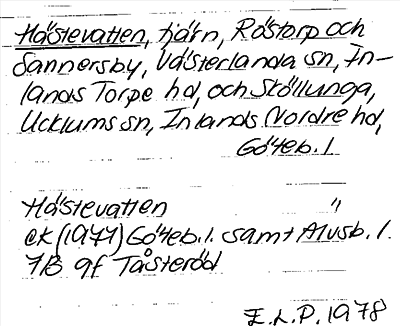 Hästevatten, tjärn, Råstorp och
Sannersby, Västerlanda sn, In-
lands Torpe hd, och Sköllunga,
Ucklums sn, Inlands Nordre hd,
Göteb. l.
Hästevatten "
ek (1977) Göteb. l. samt Älvsb. l.
7B 9f Tåsteröd
E.L.P. 1978